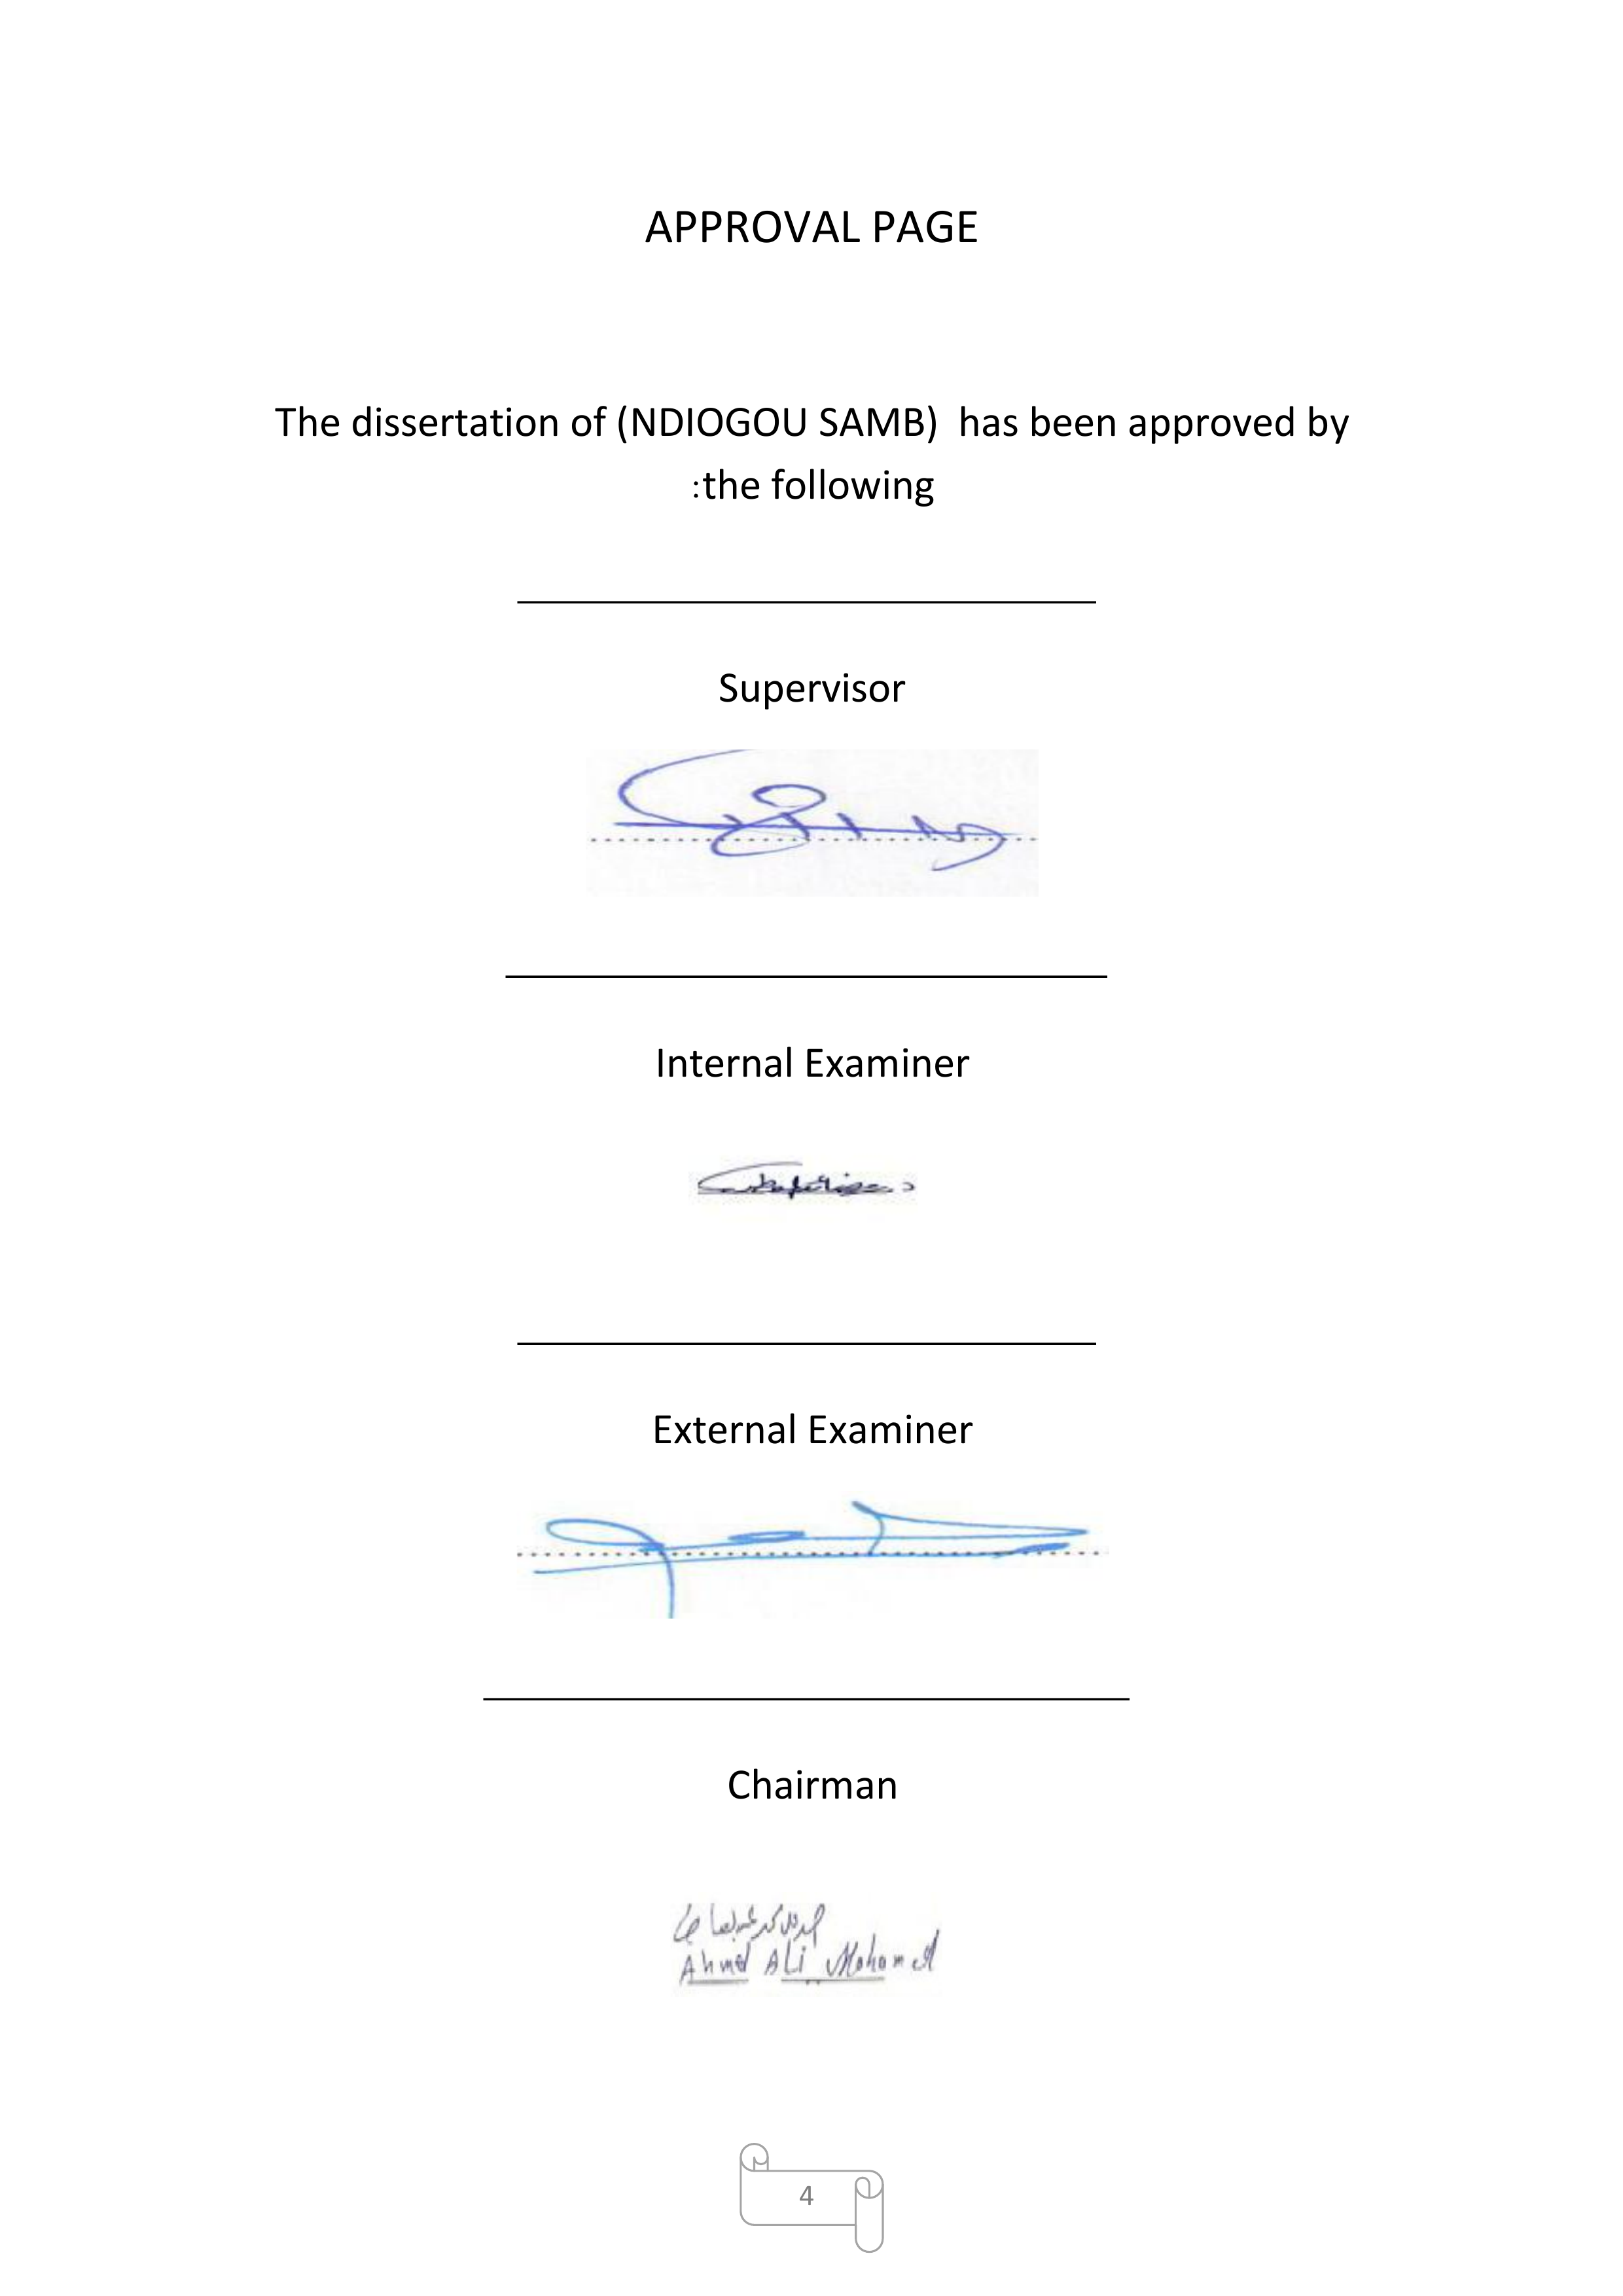 APPROVAL PAGE
The dissertation of (NDIOGOU SAMB)  has been approved by
:the following
Supervisor
Internal Examiner
External Examiner
Chairman
Ahmed Ali Mohamed
4